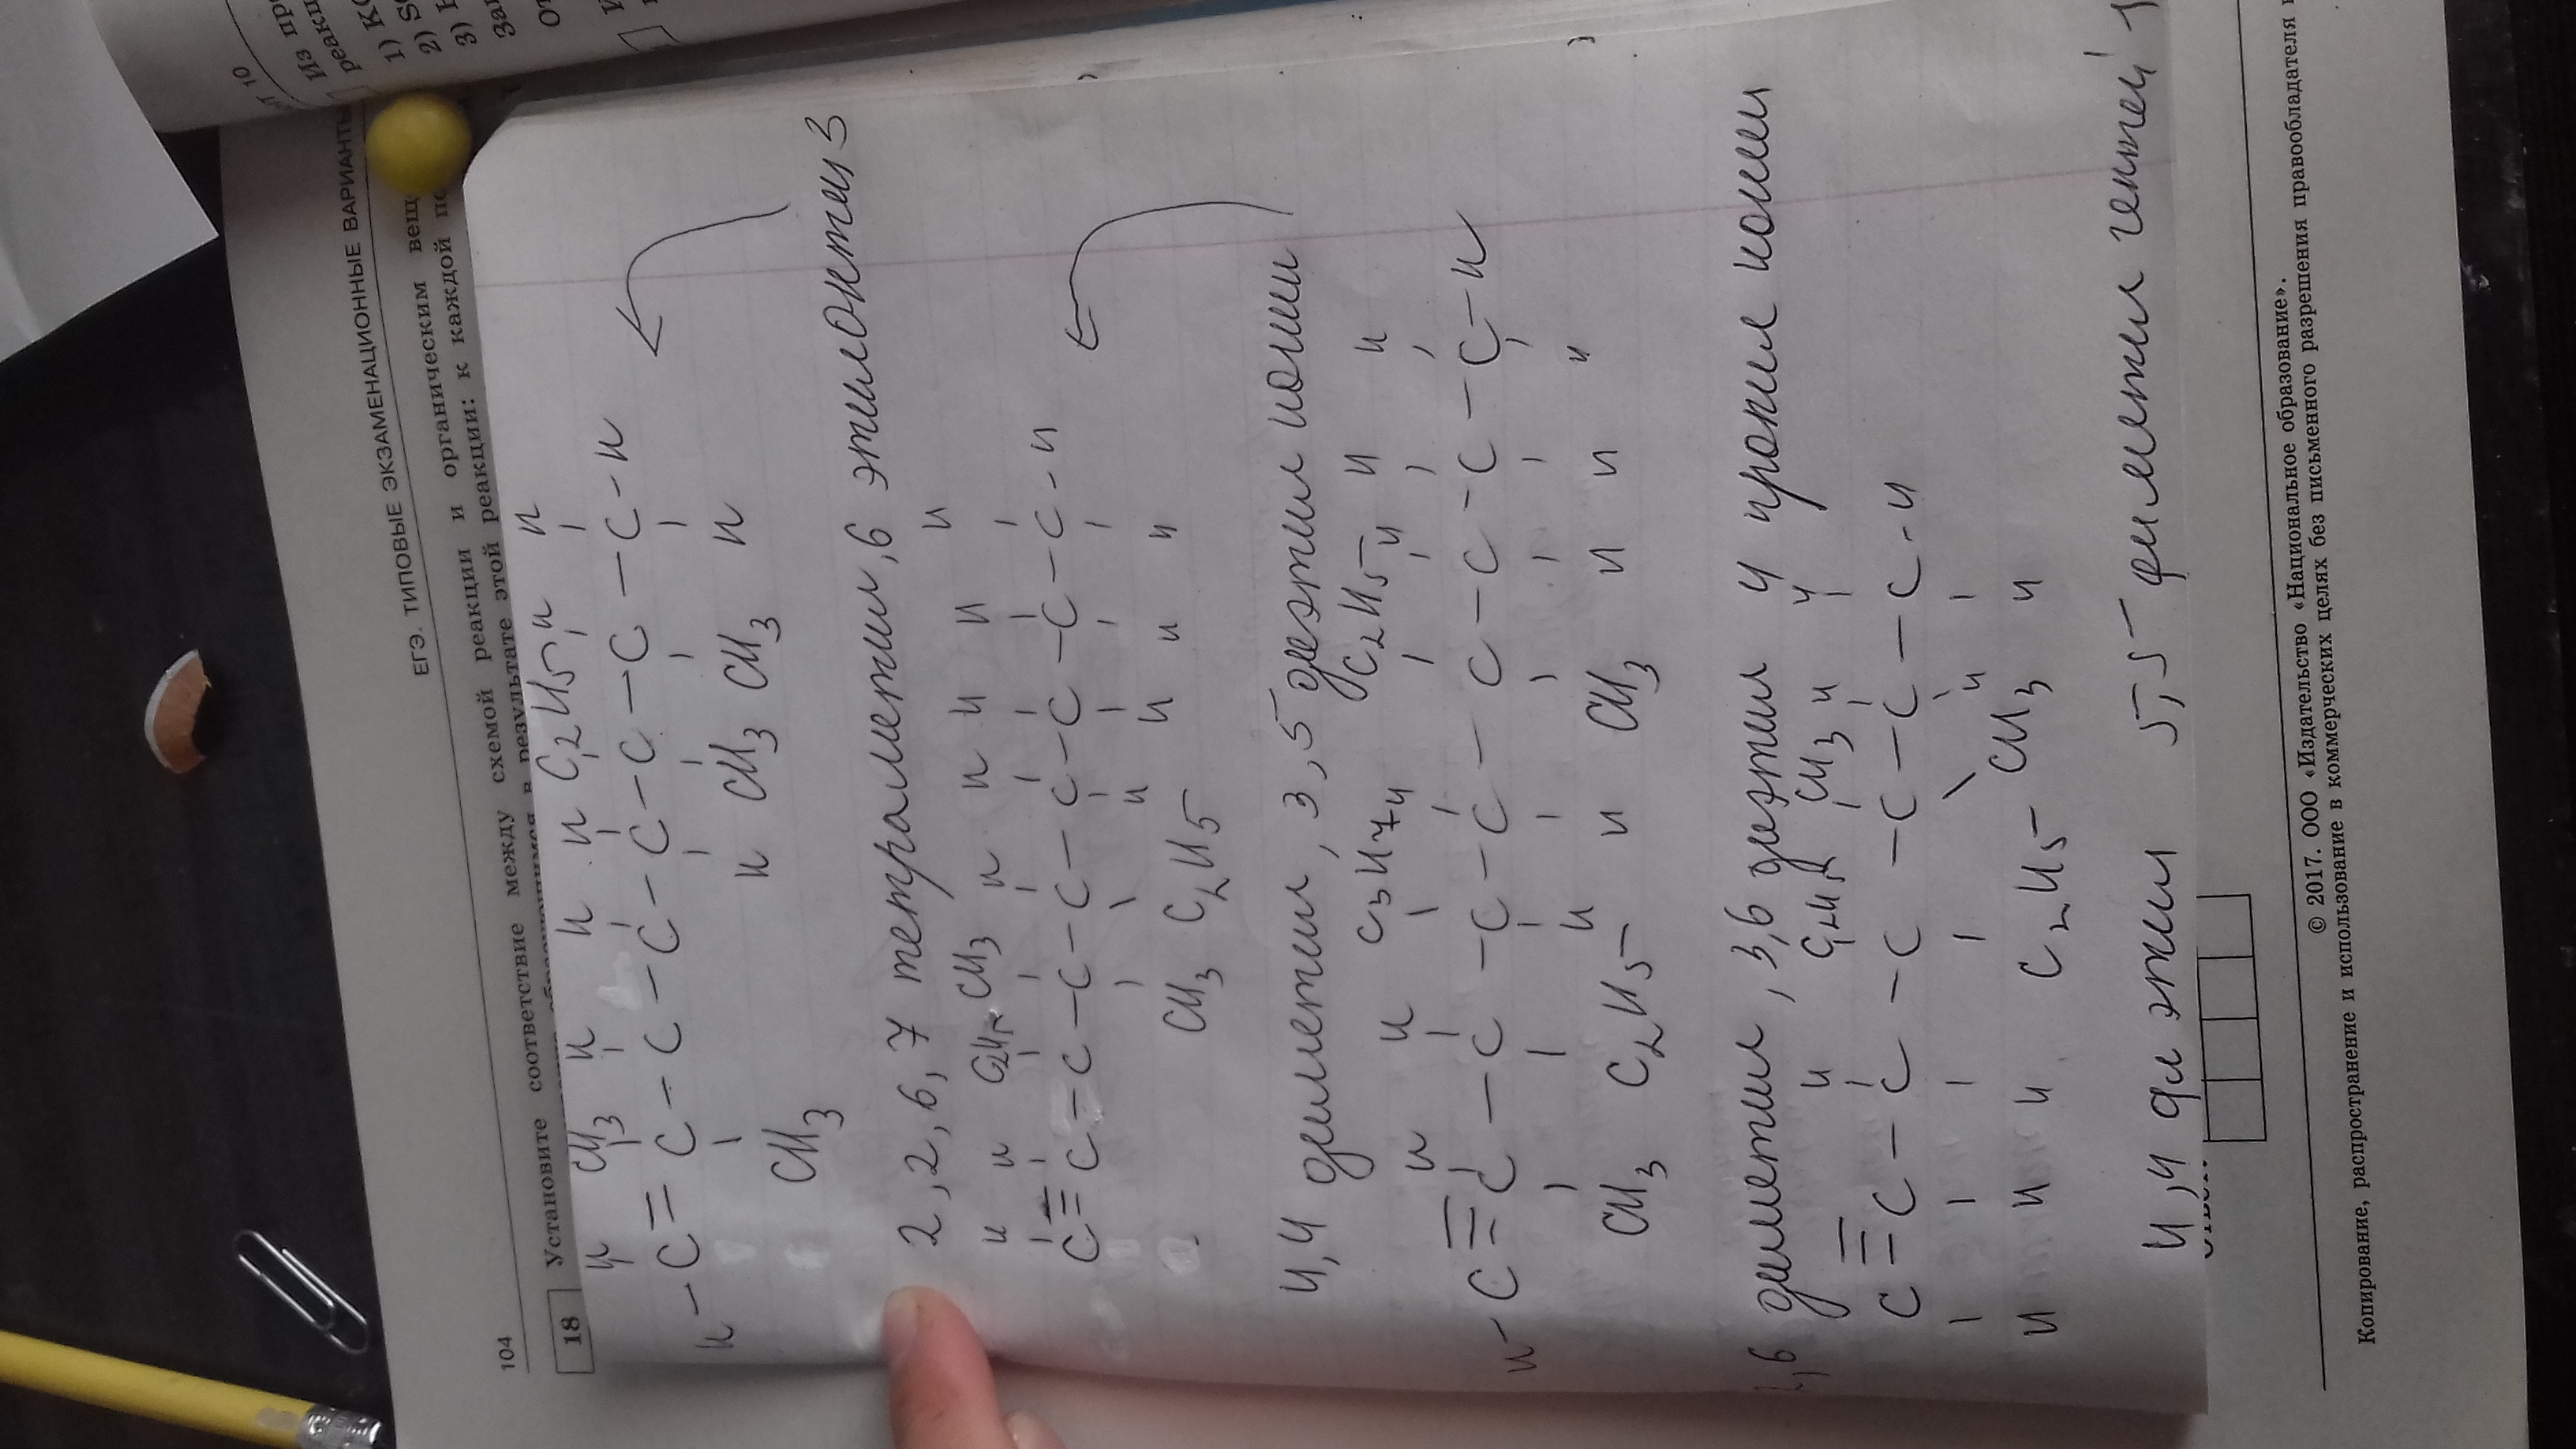 104
ЕГЭ. ТИПОВЫЕ ЭКЗАМЕНАЦИОННЫЕ ВАРИАНТЫ
18 Установите соответствие между схемой реакции и органическим вещ
в результате этой реакции: к каждой по
H CH3 H H H C2H5 H H
H-C=C-C-C-C-C-C-C-H
CH3 H CH3 CH3 H
2,2,6,7 тетраметил, 6 этилоктен 3
H H C2H5 CH3 H H H H H
C=C-C-C-C-C-C-C-C-H
CH3 C2H5 H H H H
4,4 диметил, 3,5 диэтил нонин
H H C3H7 H C2H5 H H H
H-C≡C-C-C-C-C-C-C-C-H
CH3 C2H5 H H CH3 H H H
,6 диметил, 3,6 диэтил 4 пропил нонин
H C2H5 CH3 H H
C=C-C-C-C-C-C-H
H H H C2H5 CH3 H H
4,4 ди этил 5,5 диметил гептен 1
© 2017. ООО «Издательство «Национальное образование».
Копирование, распространение и использование в коммерческих целях без письменного разрешения правообладателя
Из пр
реакц
1) K
2) S
3)